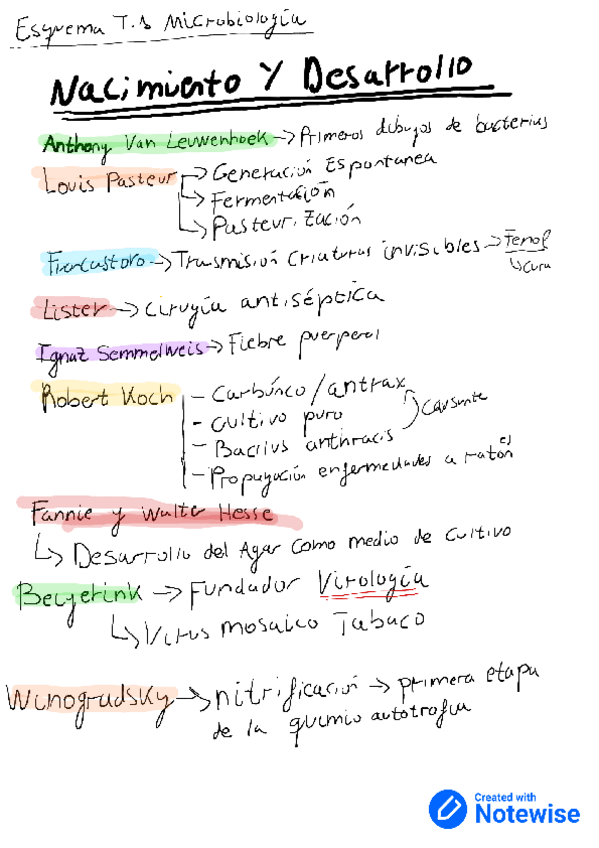 Esquema T.1 Microbiología
Nacimiento Y Desarrollo
Anthony Van Leuwenhoek → Primeros dibujos de bacterias
Louis Pasteur → Generación Espontanea
→ Fermentación
→ Pasteurización
Fracastoro → Trasmisión criaturas invisibles → Fenol
↳ cura
Lister → Cirugía antiséptica
Ignaz Semmelweis → Fiebre puerperal
Robert Koch - Carbúnco/antrax
- Cultivo puro
- Bacillus anthracis causante
- Propagación enfermedades a ratón es
Fannie y Walter Hesse
↳ Desarrollo del Agar como medio de cultivo
Beijerink → Fundador Virología
↳ Virus mosaico Tabaco
Winogradsky → nitrificación → primera etapa
de la quimio autotrofia
Created with
Notewise